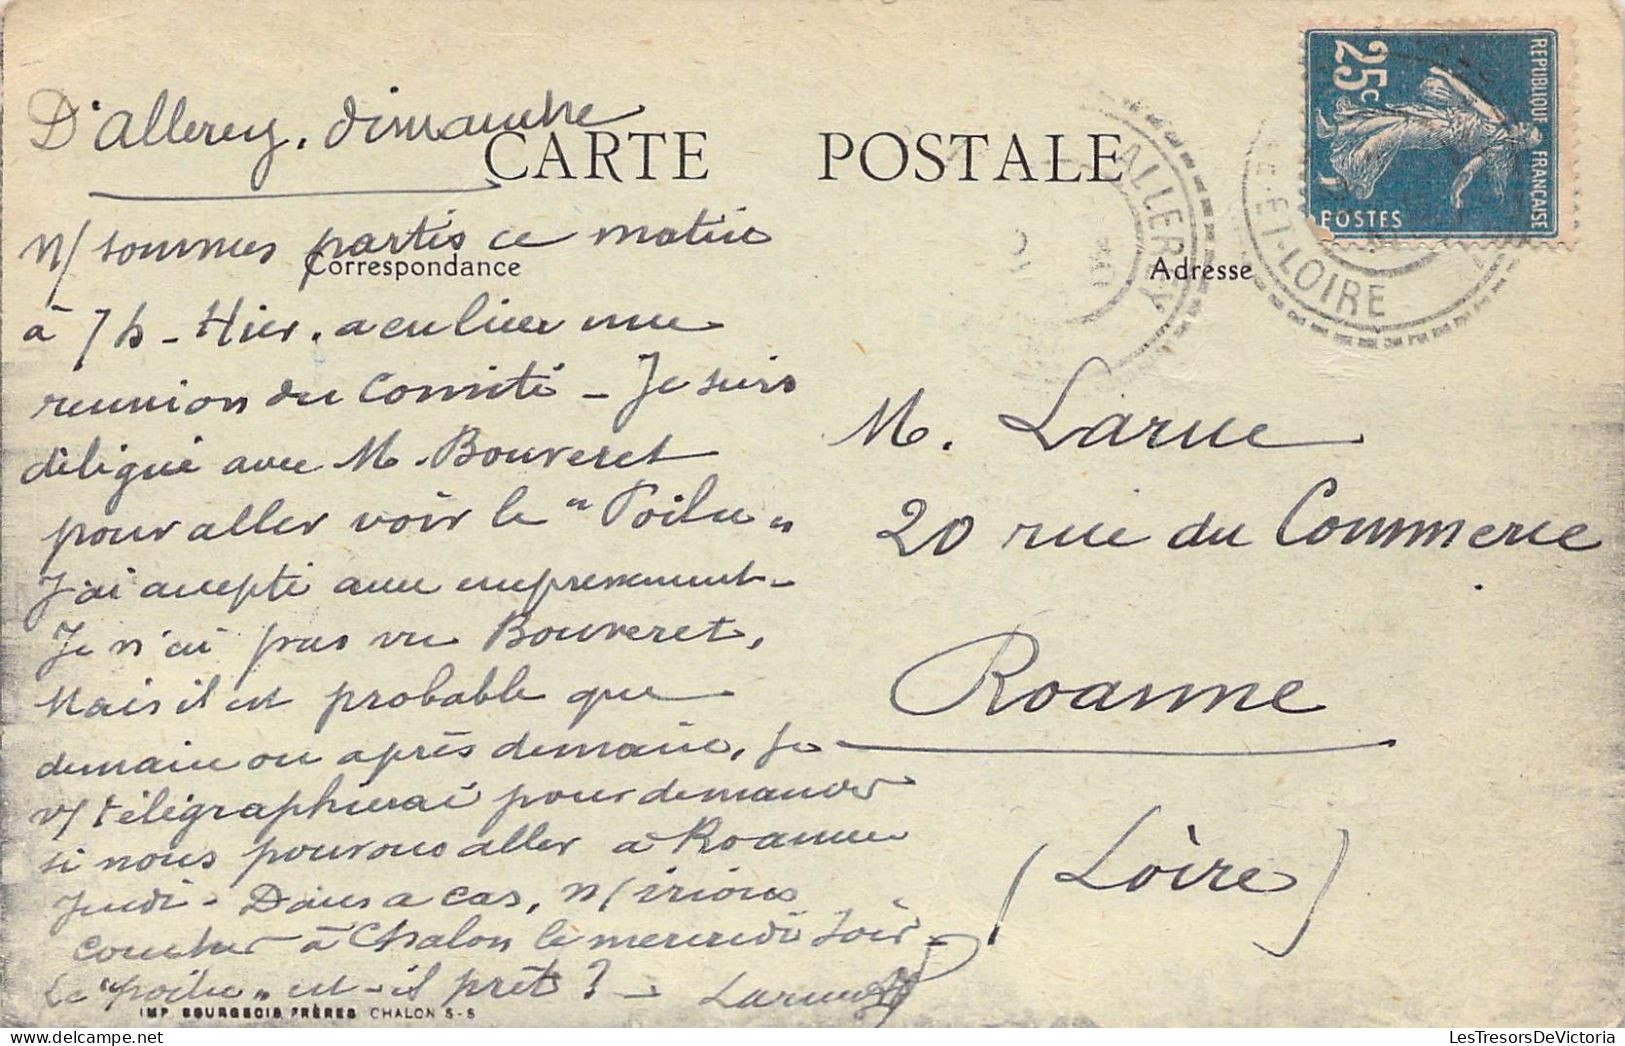 D'Allerey, dimanche
CARTE POSTALE
n/ sommes partis ce matin
Correspondance
à 7h - Hier, a eu lieu une
réunion du Comité - Je suis
délégué avec M. Bouveret
pour aller voir le "Poilu"
J'ai accepté avec empressement -
Je n'ai pas vu Bouveret,
Mais il est probable que
demain ou après demain, je
v/ télégraphierai pour demander
si nous pouvons aller à Roanne
Jeudi - Dans ce cas, n/ irions
coucher à Chalon le mercredi soir -
Le "poilu" est-il prêt ? -
IMP. BOURGEOIS FRÈRES CHALON S-S
REPUBLIQUE FRANÇAISE
25c
POSTES
ALLEREY
ET-LOIRE
Adresse
M. Larue
20 rue du Commerce
Roanne
(Loire)
LesTresorsDeVictoria.com